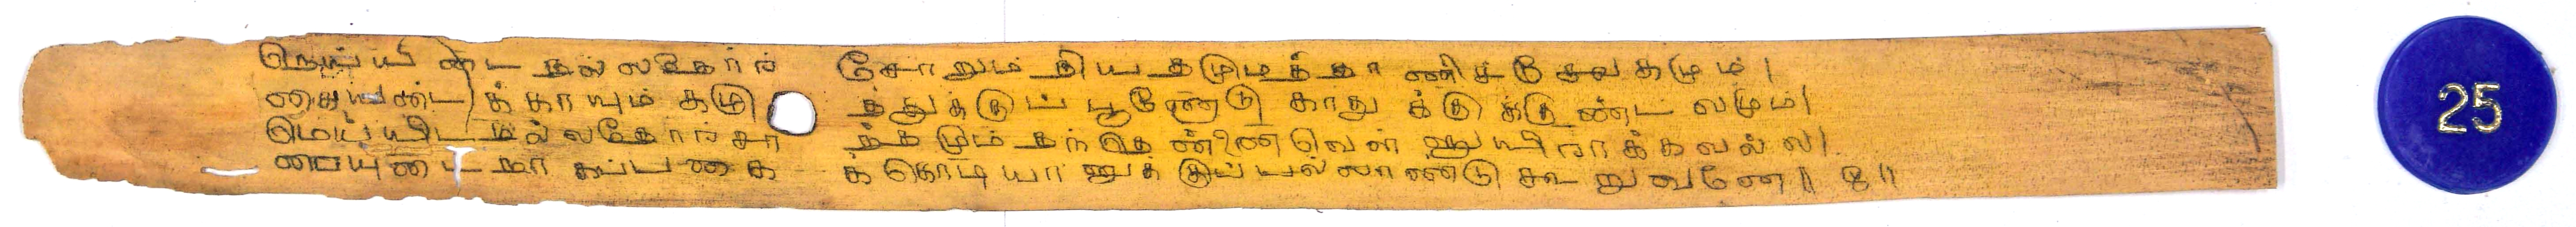 நெய்யிடை நல்லதோர் சோறும் நியதமுமத்தாணிச்சேவகமும்।
கையடைக்காயும் கழுத்துக்குப் பூணொடு காதுக்கு குண்டலமும்।
மெய்யிட நல்லதோர் சாந்தமுந் தந்தென்னை வெள்ளுயிராக்கவல்ல।
பையுடை நாகப்பகைக்கொடியானுக்குப் பல்லாண்டு கூறுவனே॥ ௮॥
25